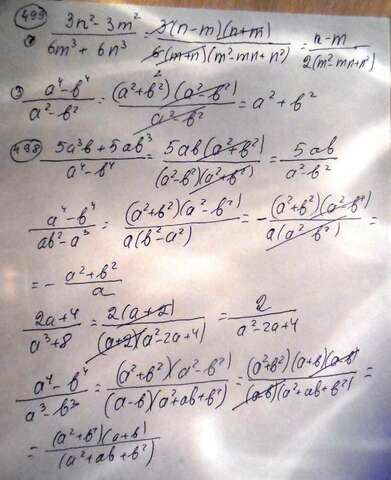 (499) 3n² - 3m² / 6m³ + 6n³ = 3(n-m)(n+m) / 6(m+n)(m²-mn+n²) = n-m / 2(m²-mn+n²)
a⁴-b⁴ / a²-b² = (a²+b²)(a²-b²) / a²-b² = a²+b²
(498) 5a³b+5ab³ / a⁴-b⁴ = 5ab(a²+b²) / (a²-b²)(a²+b²) = 5ab / a²-b²
a⁴-b⁴ / ab²-a³ = (a²+b²)(a²-b²) / a(b²-a²) = - (a²+b²)(a²-b²) / a(a²-b²) =
= - a²+b² / a
2a+4 / a³+8 = 2(a+2) / (a+2)(a²-2a+4) = 2 / a²-2a+4
a⁴-b⁴ / a³-b³ = (a²+b²)(a²-b²) / (a-b)(a²+ab+b²) = (a²+b²)(a+b)(a-b) / (a-b)(a²+ab+b²) =
= (a²+b²)(a+b) / (a²+ab+b²)